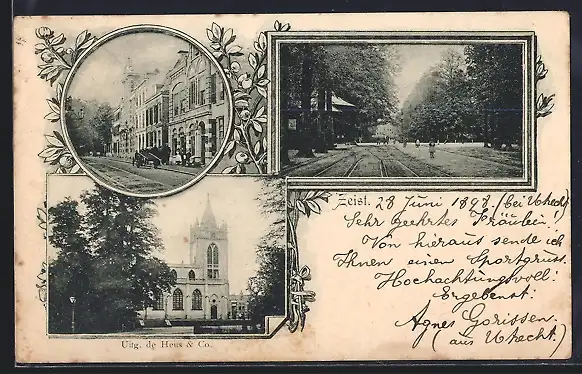 Zeist. 28 Juni 1898. (bei Utrecht)
Sehr geehrtes Fräulein!
Von hieraus sende ich
Ihnen einen Sportgruss.
Hochachtungsvoll!
Ergebenst:
Agnes Gorissen.
(aus Utrecht.)
Uitg. de Heus & Co.